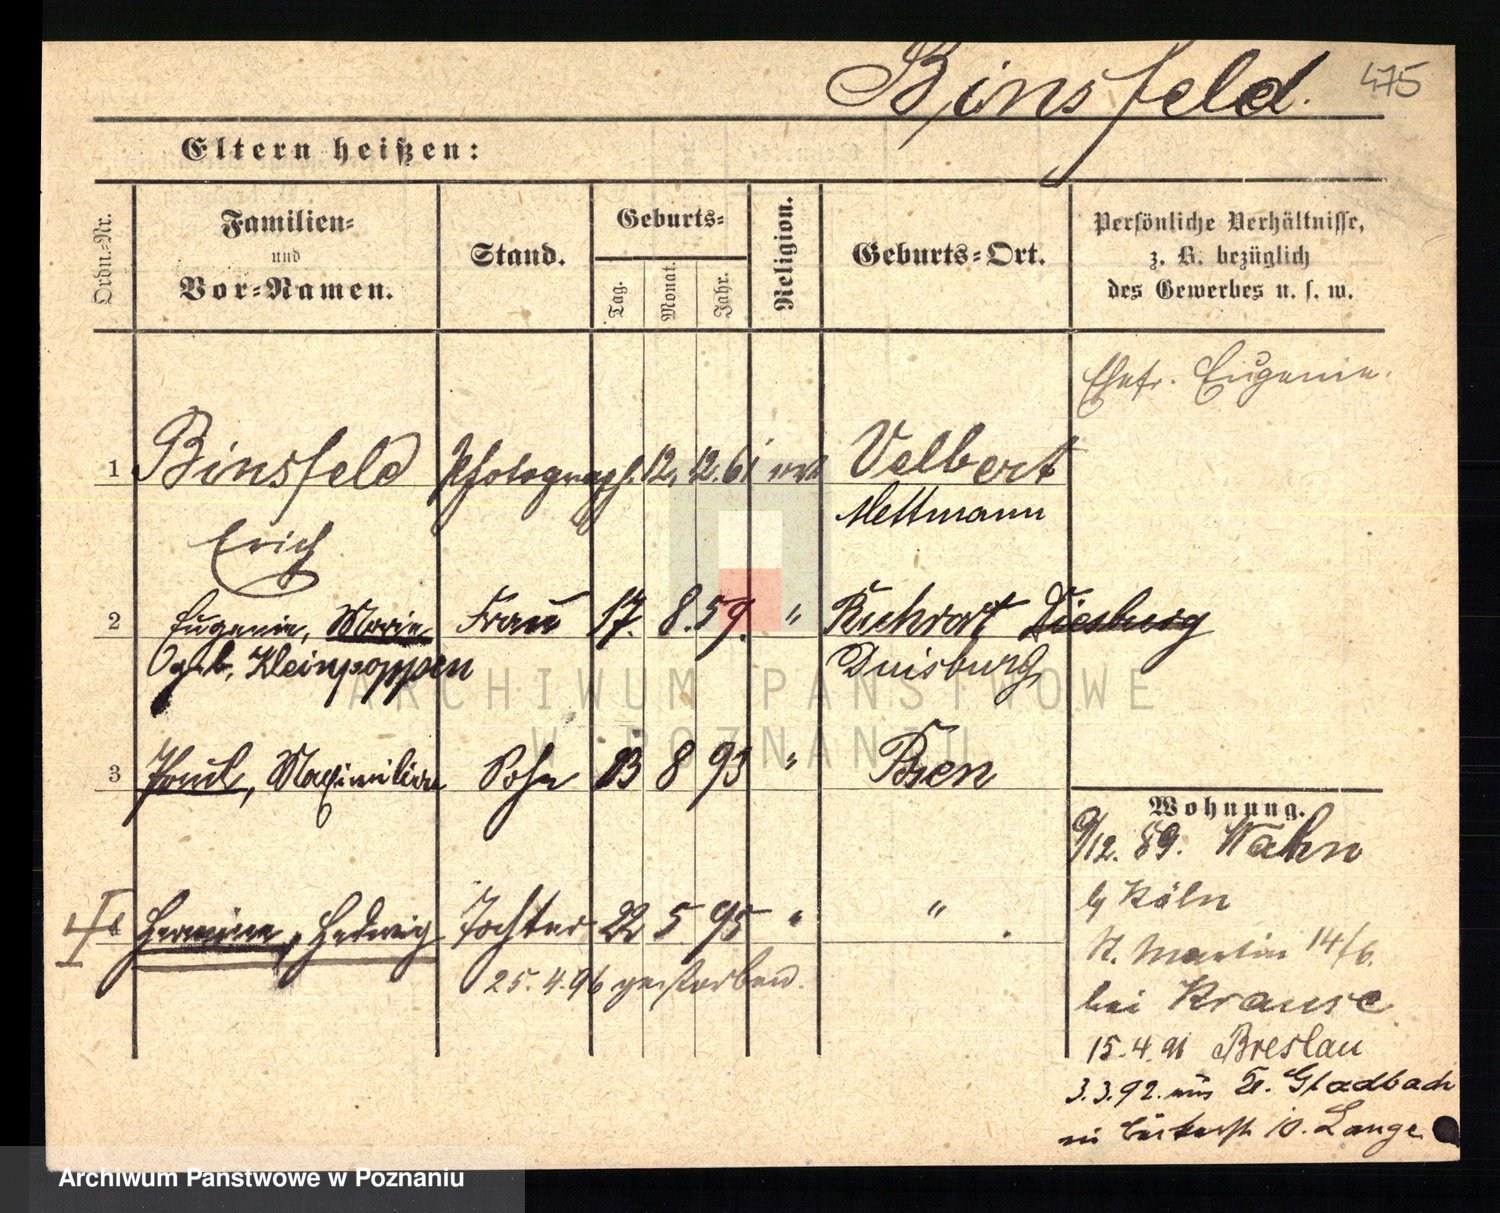 Binsfeld. 475
Eltern heißen:
Ordn.-Nr.
Familien-
und
Vor-Namen.
Stand.
Geburts-
Tag.
Monat.
Jahr.
Religion.
Geburts-Ort.
Persönliche Verhältnisse,
z. B. bezüglich
des Gewerbes u. s. w.
Ehefr. Eugenie.
1 Binsfeld Photograph. 12. 12. 61 Velbert
Mettmann
Erich
2 Eugenie, Marie Frau 17. 8. 59. " Ruhrort Duisburg
geb. Kleinpoppen Duisburg
3 Paul, Maximilian Sohn 23 8 93 " Posen
4 Hermine, Hedwig Tochter 22 5 95 " "
25.4.96 gestorben.
Wohnung.
9/12. 89. Wahn
b/ Köln
St. Martin 14/6.
bei Krause
15.4.91 Breslau
3.3.92. aus Gladbach
in 10. Lange
ARCHIWUM PAŃSTWOWE
W POZNANIU
Archiwum Panstwowe w Poznaniu